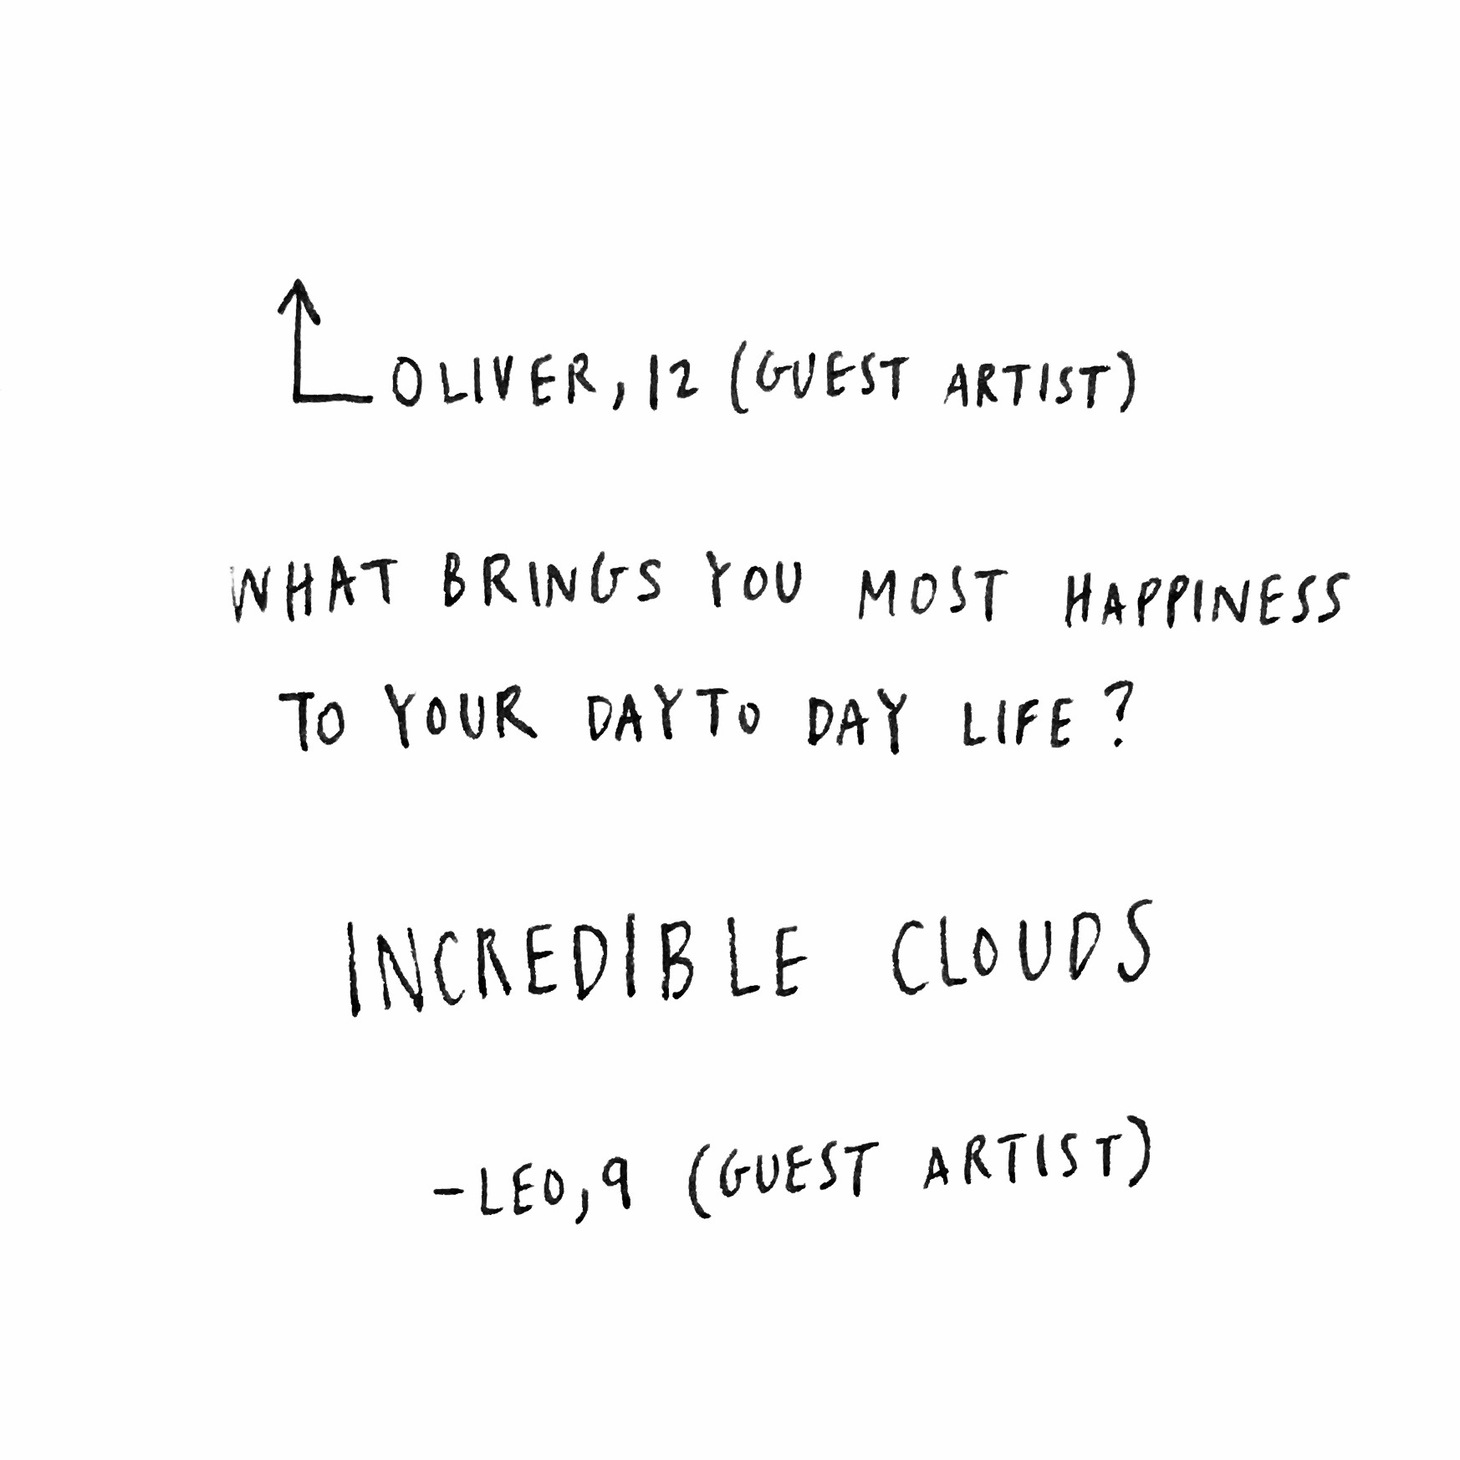 OLIVER, 12 (GUEST ARTIST)
WHAT BRINGS YOU MOST HAPPINESS
TO YOUR DAY TO DAY LIFE?
INCREDIBLE CLOUDS
-LEO, 9 (GUEST ARTIST)